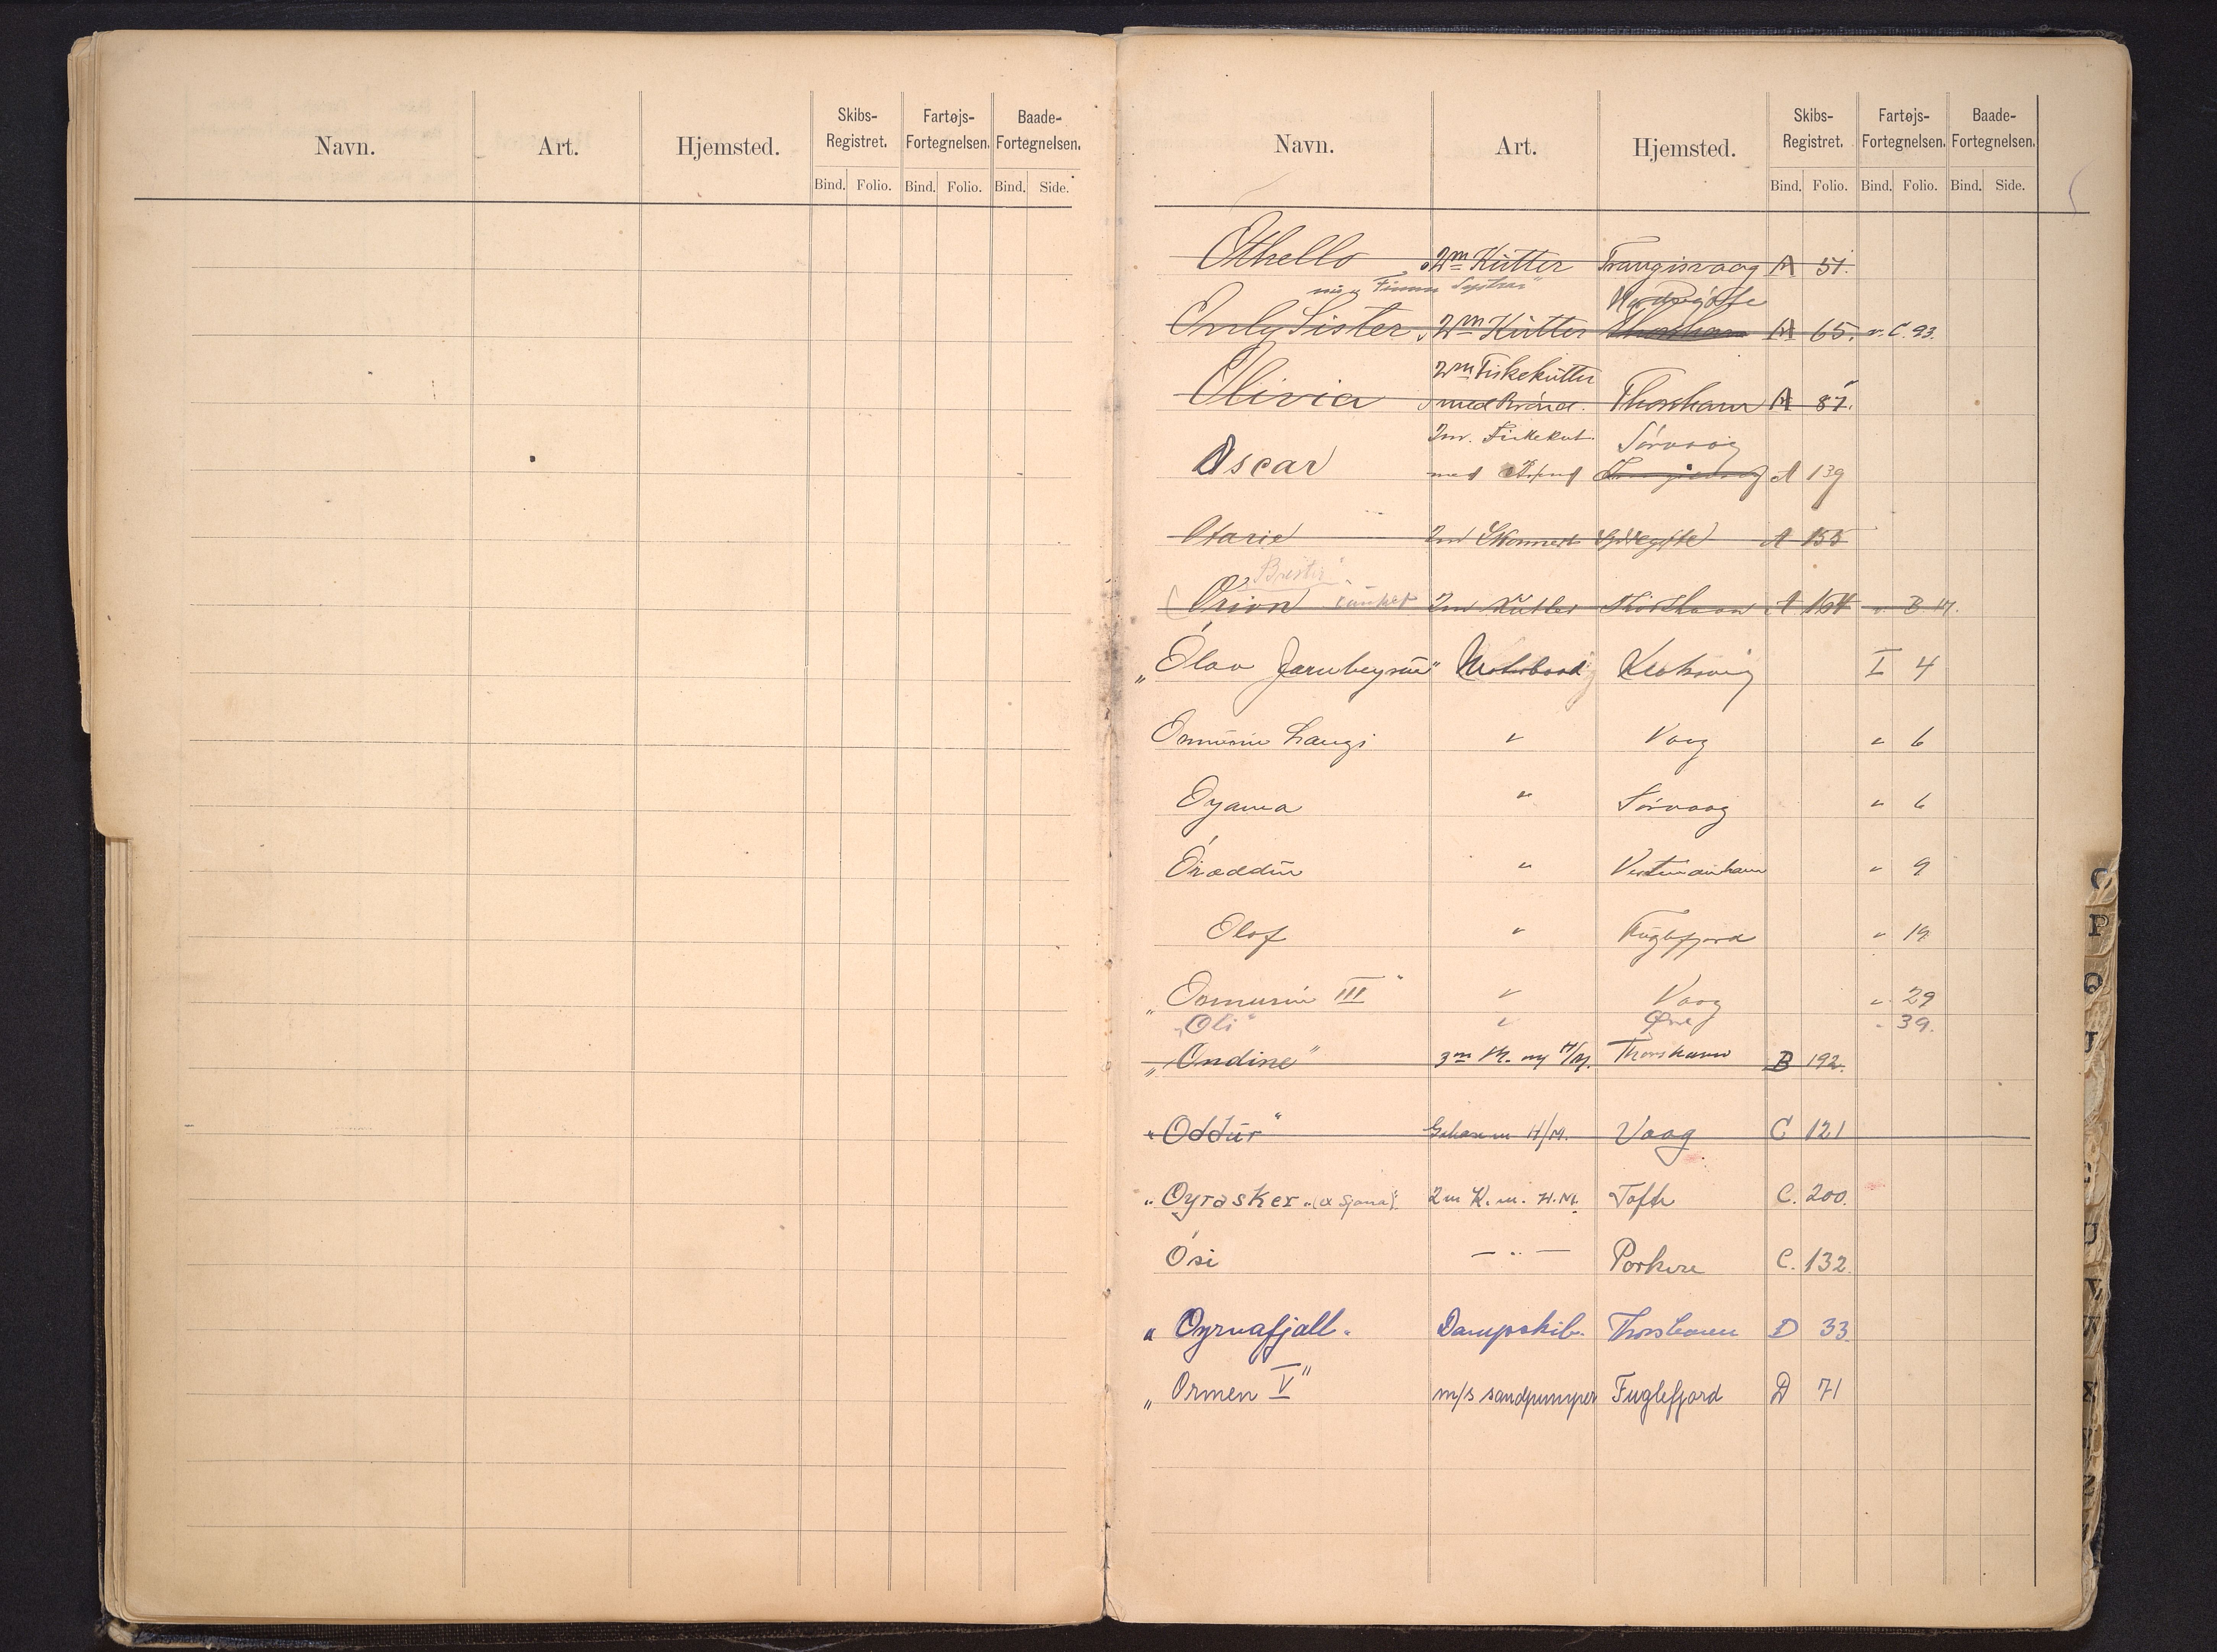 Navn. Art. Hjemsted. Skibs-Registret. Fartøjs-Fortegnelsen. Baade-Fortegnelsen.
Bind. Folio. Bind. Folio. Bind. Side.
Navn. Art. Hjemsted. Skibs-Registret. Fartøjs-Fortegnelsen. Baade-Fortegnelsen.
Bind. Folio. Bind. Folio. Bind. Side.
Othello 2m Kutter Trangisvaag A 51.
Nordregøte
Only Sister 2m Kutter A 65. C. 93.
2m Fiskekutter
Olivia med Brønd. Thorshavn A 87.
2m. Fiskekut. Sørvaag
Oscar med A 139
Otaria 2m Skonnert A 155
"Brestir"
Orion 2m Kutter Thorshavn A 164 B 17.
"Ólav Jarnbeysur" Motorbaad Klaksvig I 4
Ormurin Langi " Vaag " 6
Oyama " Sørvaag " 6
Óræddur " Vestmanhavn " 9
Olaf " Fuglefjord " 19
"Ormurin III" " Vaag " 29
"Oli" " " 39.
"Ondine" 3m Sk. m/ H/M. Thorshavn B 192.
"Oddur" H/M. Vaag C 121
"Oyrasker" (ex Sjana) 2m K. m. H.M. Tofte C. 200.
Ósi — " — Porkere C. 132.
"Oyrnafjall" Dampskib. Thorshavn D 33.
"Ormen V" m/s sandpumper Fuglefjord D 71
O
P
Q